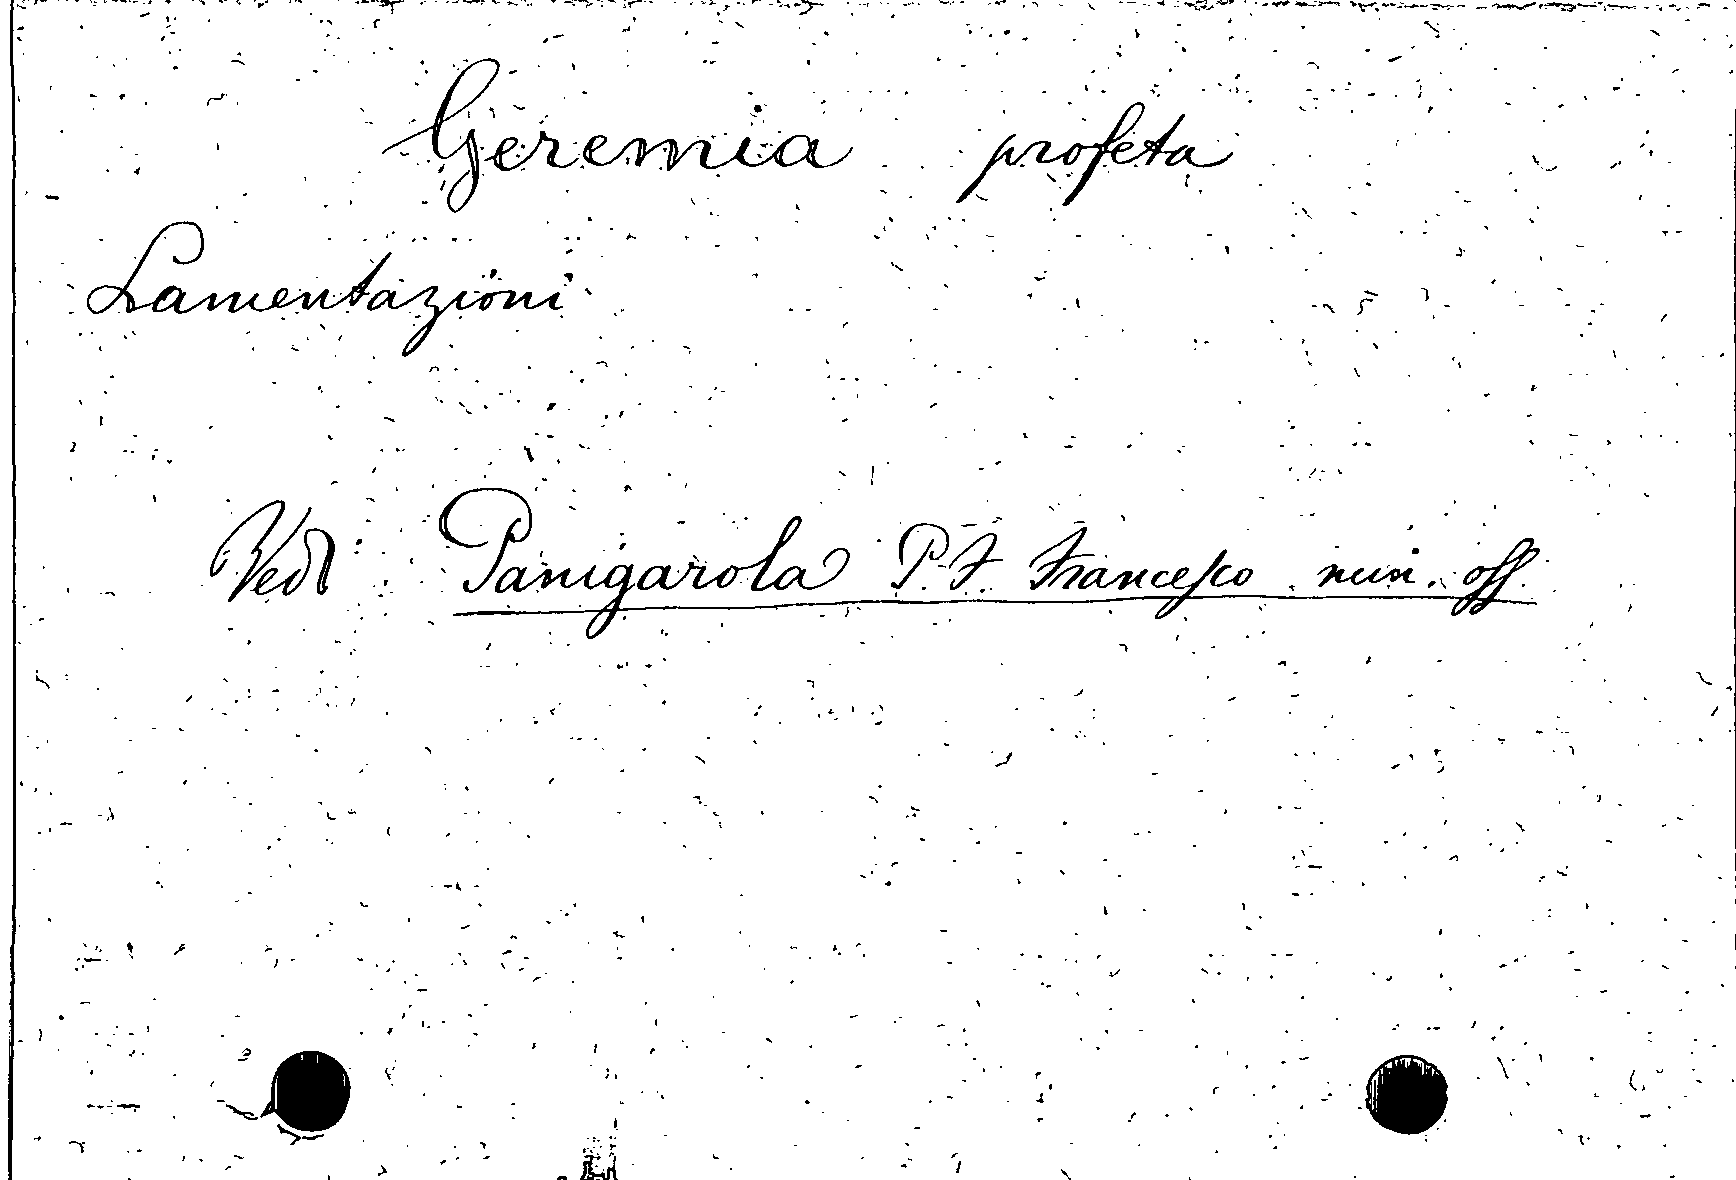 Geremia profeta
Lamentazioni
Vedi Panigarola P. F. Francesco min. oss.